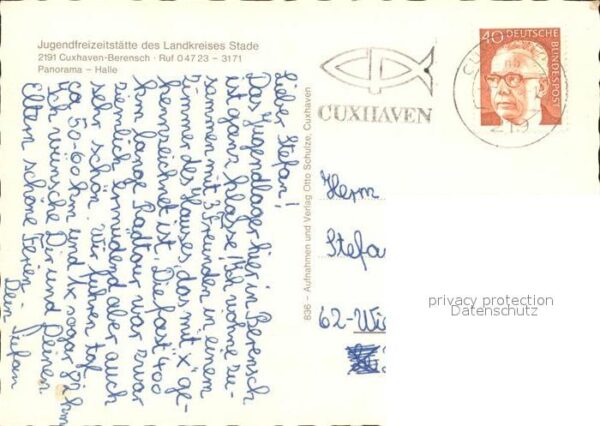 Jugendfreizeitstätte des Landkreises Stade
2191 Cuxhaven-Berensch · Ruf 04723 – 3171
Panorama – Halle
Liebe Stefan!
Das Jugendlager hier in Berensch
ist ganz klasse! Ich wohne zu-
sammen mit 3 Freunden in einem
Zimmer des Hauses, das mit "x" ge-
kennzeichnet ist. Die fast 400
km lange Radtour war zwar
ziemlich ermüdend aber auch
sehr schön. Wir fuhren tägl.
ca. 50-60 km und 1x sogar 82 km
Ich wünsche Dir und Deinen
Eltern schöne Ferien.
Dein Stefan
636 – Aufnahmen und Verlag Otto Schulze, Cuxhaven
CUXHAVEN
40 DEUTSCHE BUNDESPOST
219
Herrn
Stefa
62-Wi
privacy protection
Datenschutz